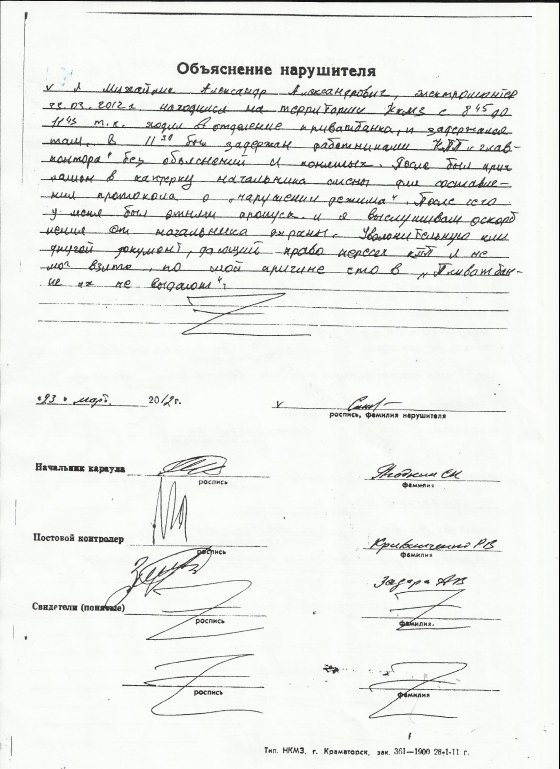 Объяснение нарушителя
v Я Михайлик Александр Александрович, электромонтер
23.03.2012г. находился на территории ККМЗ с 8 45 до
11 45 т.к. ходил в отделение приватбанка, и задержался
там. В 11 50 был задержан работниками КПП „глав-
контора" без объяснений и понятых. После был приг
лашон в каптерку начальника смены для составле-
ния протокола о „нарушении режима". После чего
у меня был отнят пропуск и я выслушивал оскорб
ления от начальника охраны. Увольнительную или
другой документ, дающий право пересеч КПП я не
мог взять, по той причине что в „Приватбан-
ке их не выдают".
„23" март. 2012г.
v
роспись, фамилия нарушителя
Начальник караула
роспись
фамилия
Постовой контролер
роспись
фамилия
Задара АВ
Свидетели (понятые)
роспись
фамилия.
роспись
фамилия
Тип. НКМЗ, г. Краматорск, зак. 361—1900 28-I-11 г.